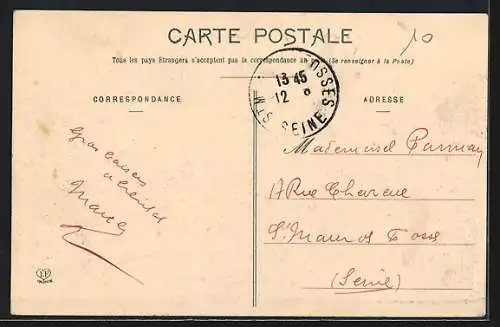 CARTE POSTALE
10
Tous les pays Etrangers n'acceptent pas la correspondance au (Se renseigner à la Poste)
CORRESPONDANCE
ADRESSE
OSSES
13 45
12 8
ST M
SEINE
Gros baisers
a bientot
Mademoisel
17 Rue
St Maur d Foss
(Seine)